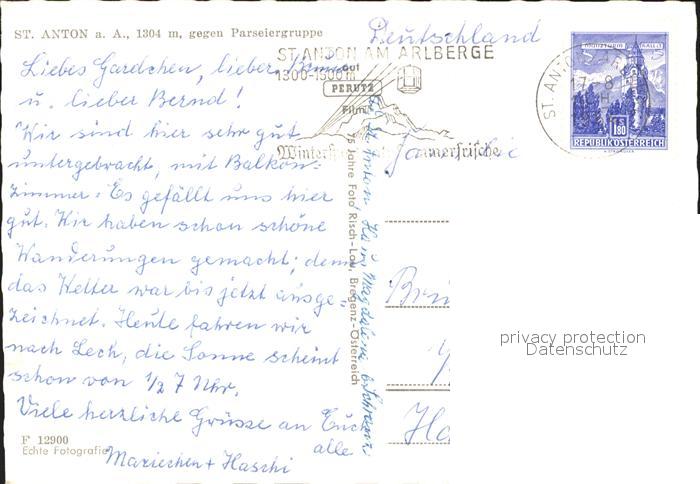 ST. ANTON a. A., 1304 m, gegen Parseiergruppe
Deutschland
ST. ANTON AM ARLBERGE
1300-1500 m
auf
PERUTZ
Film
ST. ANTON
17. 8.
MÜNZTURM HALL I.T.
S 1.80
REPUBLIK ÖSTERREICH
Liebes Gardchen, lieber
u. lieber Bernd!
Wir sind hier sehr gut
untergebracht, mit Balkon-
zimmer. Es gefällt uns hier
gut. Wir haben schon schöne
Wanderungen gemacht; denn
das Wetter war bis jetzt ausge-
zeichnet. Heute fahren wir
nach Lech, die Sonne scheint
schon von 1/2 7 Uhr.
Viele herzliche Grüsse an Euch
alle
Mariechen + Haschi
75 Jahre Foto Risch-Lau, Bregenz-Österreich
Familie
F 12900
Echte Fotografie
privacy protection
Datenschutz